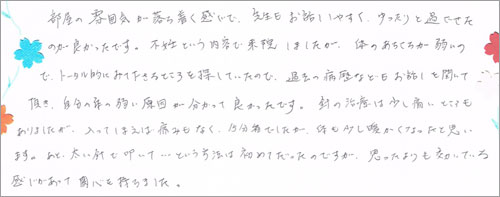 部屋の雰囲気が落ち着く感じで、先生もお話しやすく、ゆったりと過ごせた
のが良かったです。不妊という内容で来院しましたが、体のあちこちが弱いの
で、トータル的にみて下さるところを探していたので、過去の病歴などもお話しを聞いて
頂き、自分の体の弱い原因が分かって良かったです。針の治療は少し痛いところも
ありましたが、入ってしまえば痛みもなく、15分程でしたが、体も少し暖かくなったと思い
ます。あと、太い針で叩いて…という方法は初めてだったのですが、思ったよりも効いている
感じがあって関心を持ちました。